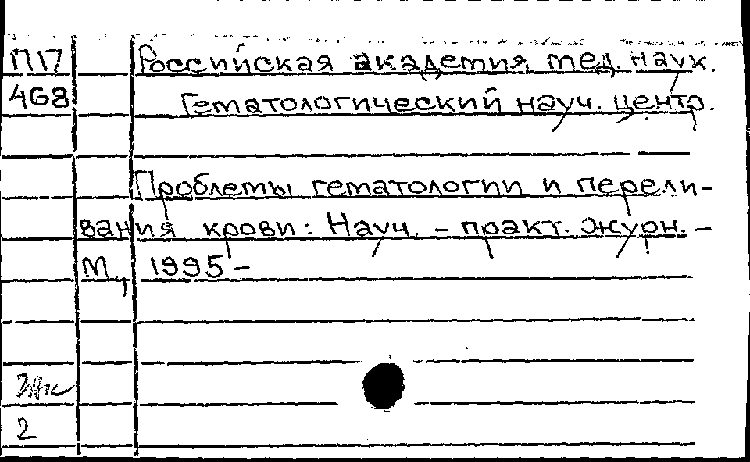 П17 Российская академия мед. наук.
468 Гематологический науч. центр.
Проблемы гематологии и перели-
вания крови: Науч. - практ. журн. -
М., 1995 -
2